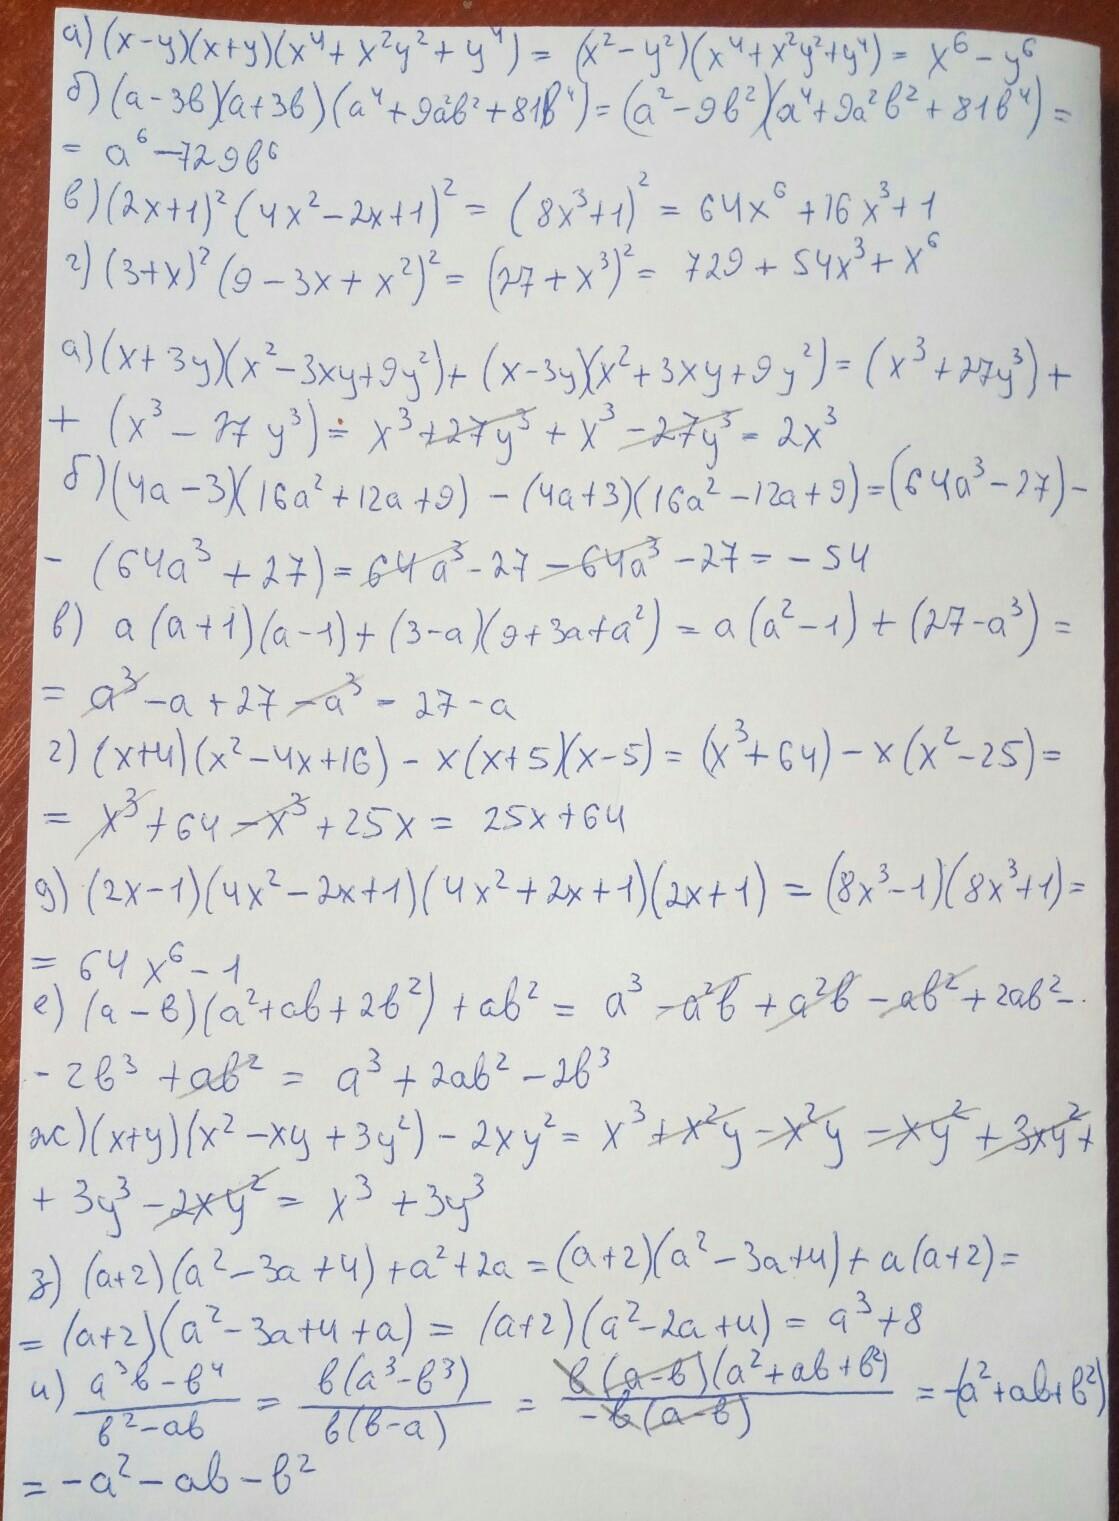 а) (x-y)(x+y)(x⁴+x²y²+y⁴) = (x²-y²)(x⁴+x²y²+y⁴) = x⁶-y⁶
б) (a-3b)(a+3b)(a⁴+9a²b²+81b⁴) = (a²-9b²)(a⁴+9a²b²+81b⁴) =
= a⁶-729b⁶
в) (2x+1)²(4x²-2x+1)² = (8x³+1)² = 64x⁶+16x³+1
г) (3+x)²(9-3x+x²)² = (27+x³)² = 729+54x³+x⁶
а) (x+3y)(x²-3xy+9y²)+(x-3y)(x²+3xy+9y²) = (x³+27y³)+
+ (x³-27y³) = x³+27y³+x³-27y³ = 2x³
б) (4a-3)(16a²+12a+9) - (4a+3)(16a²-12a+9) = (64a³-27)-
- (64a³+27) = 64a³-27-64a³-27 = -54
в) a(a+1)(a-1)+(3-a)(9+3a+a²) = a(a²-1)+(27-a³) =
= a³-a+27-a³ = 27-a
г) (x+4)(x²-4x+16) - x(x+5)(x-5) = (x³+64) - x(x²-25) =
= x³+64-x³+25x = 25x+64
д) (2x-1)(4x²-2x+1)(4x²+2x+1)(2x+1) = (8x³-1)(8x³+1) =
= 64x⁶-1
е) (a-b)(a²+ab+2b²)+ab² = a³-a²b+a²b-ab²+2ab²-
-2b³+ab² = a³+2ab²-2b³
ж) (x+y)(x²-xy+3y²)-2xy² = x³+x²y-x²y-xy²+3xy²+
+3y³-2xy² = x³+3y³
з) (a+2)(a²-3a+4)+a²+2a = (a+2)(a²-3a+4)+a(a+2) =
= (a+2)(a²-3a+4+a) = (a+2)(a²-2a+4) = a³+8
и) (a³b-b⁴)/(b²-ab) = b(a³-b³)/b(b-a) = b(a-b)(a²+ab+b²)/-b(a-b) = -(a²+ab+b²)
= -a²-ab-b²